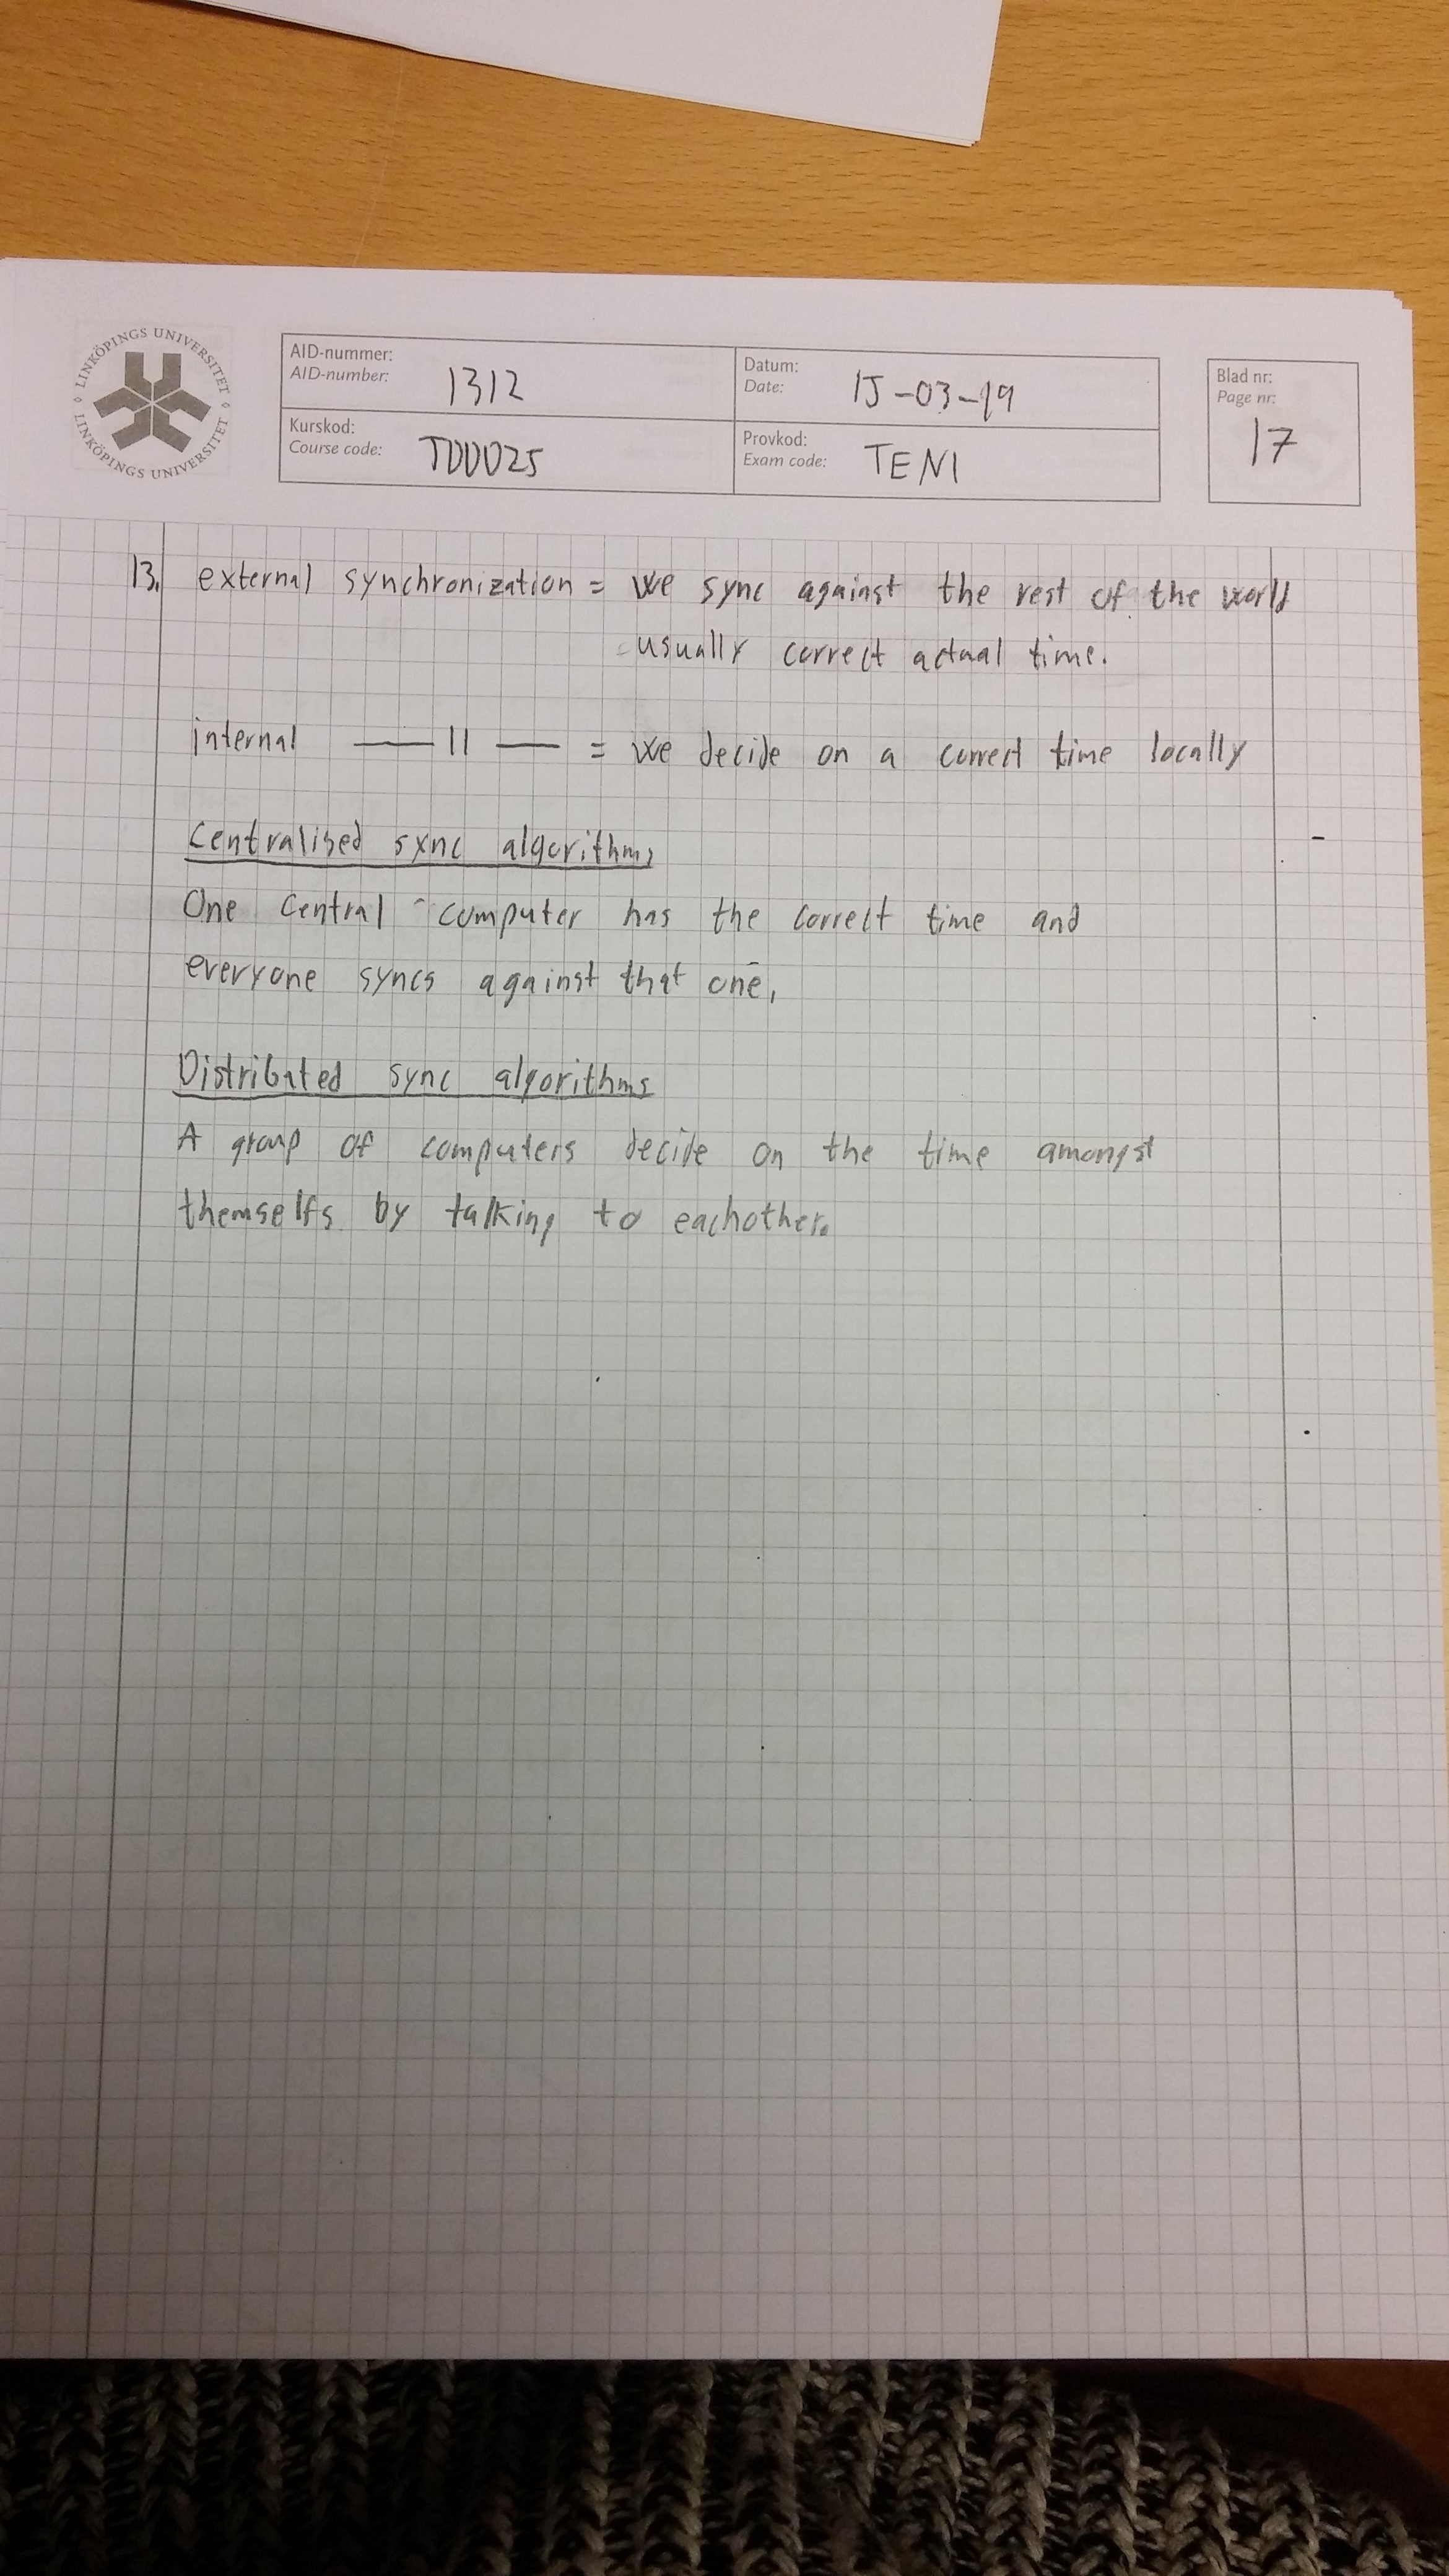 LINKÖPINGS UNIVERSITET
LINKÖPINGS UNIVERSITET
AID-nummer:
AID-number: 1312
Datum:
Date: 15-03-19
Blad nr:
Page nr:
17
Kurskod:
Course code: TDDD25
Provkod:
Exam code: TEN1
13. external synchronization = we sync against the rest of the world
usually correct actual time.
internal —— 11 —— = we decide on a correct time locally
Centralised sync algorithms
One central computer has the correct time and
everyone syncs against that one.
Distributed sync algorithms
A group of computers decide on the time amongst
themselfs by talking to eachother.